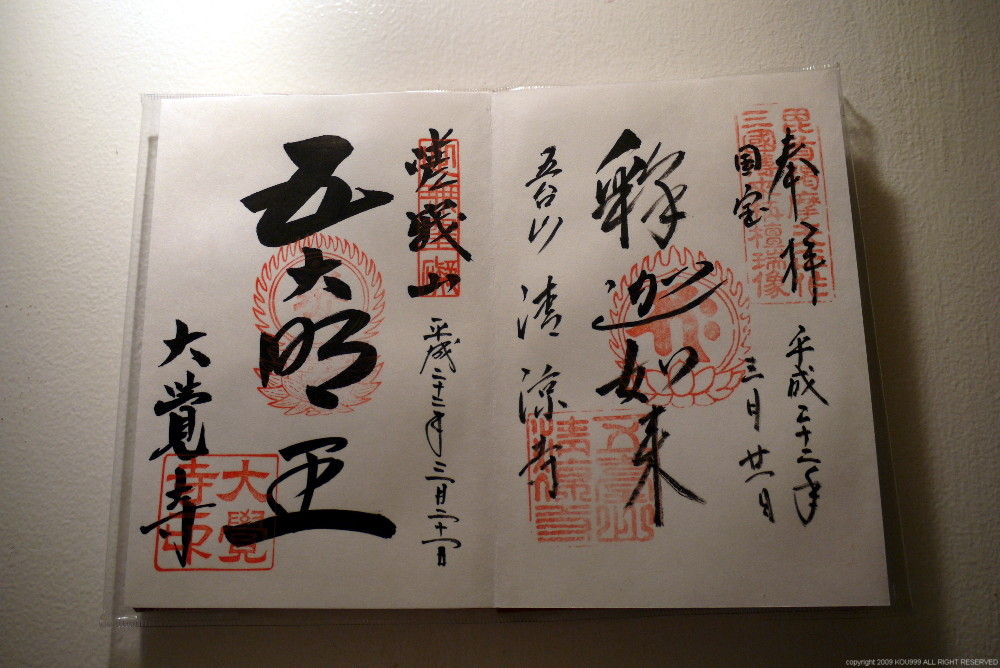 奉拝 平成二十二年
国宝 三月廿一日
三國傳来栴檀瑞像
釋迦如来
五台山 清凉寺
嵯峨山 平成二十二年三月二十一日
五大明王
大覺寺
大覺
寺印
copyright 2009 KOU999 ALL RIGHT RESERVED